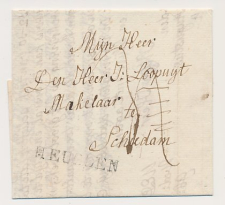 Mijn Heer
Den Heer J: Loopuyt
Makelaar
te
Schiedam
HEUSDEN